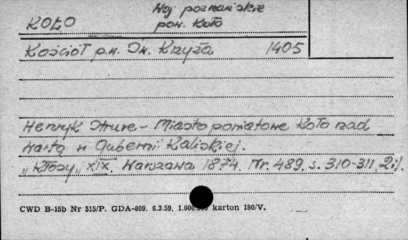 Woj poznańskie
KOŁO pow. Koło
Kościół p.w. Św. Krzyża 1405
Henryk Struve - Miasto powiatowe Koło nad
Wartą w Guberni Kaliskiej.
"Kłosy" XIX. Warszawa 1874, Nr. 489, s. 310-311, 2il.
CWD B-15b Nr 515/P. GDA-609. 6.3.59. 1.000.000 karton 180/V.